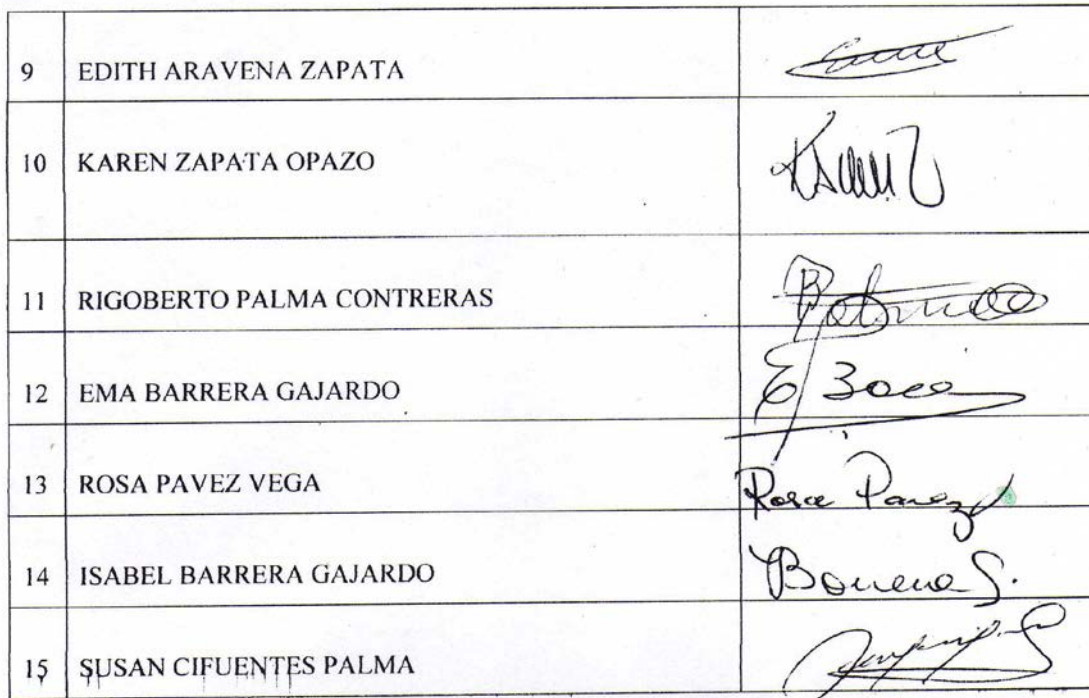 9 EDITH ARAVENA ZAPATA
10 KAREN ZAPATA OPAZO
11 RIGOBERTO PALMA CONTRERAS
12 EMA BARRERA GAJARDO
13 ROSA PAVEZ VEGA Rosa Pavez
14 ISABEL BARRERA GAJARDO
15 SUSAN CIFUENTES PALMA